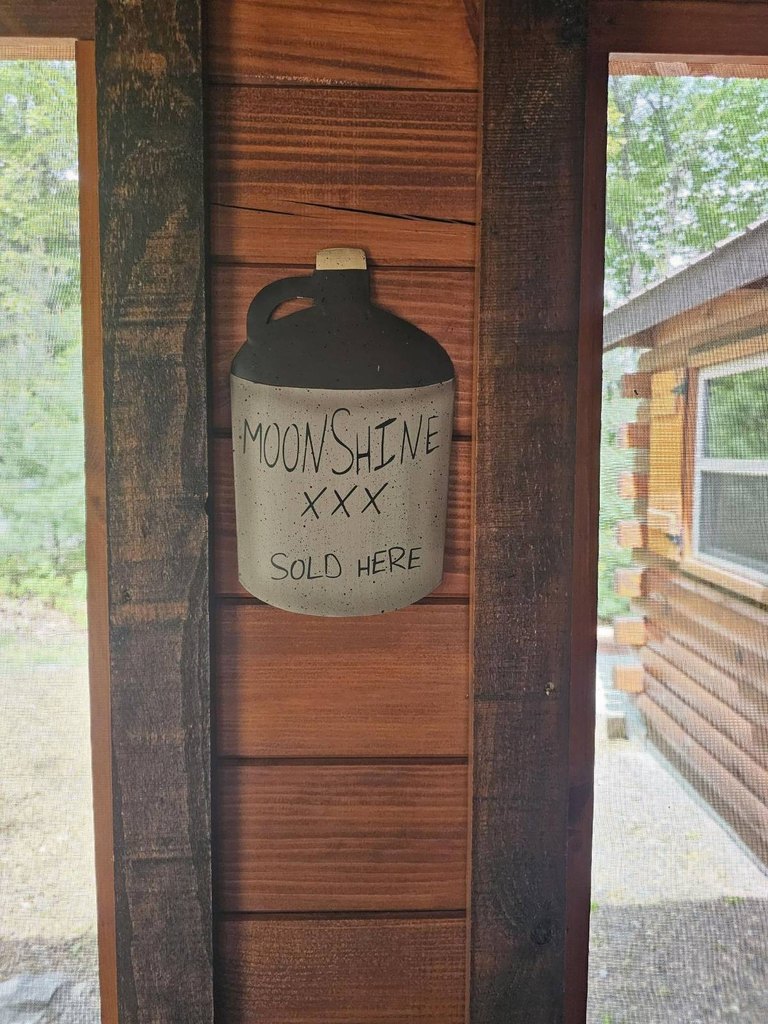 MOONSHINE
XXX
SOLD HERE